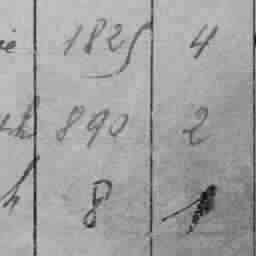 ie 1825 4
th 890 2
h 8 1